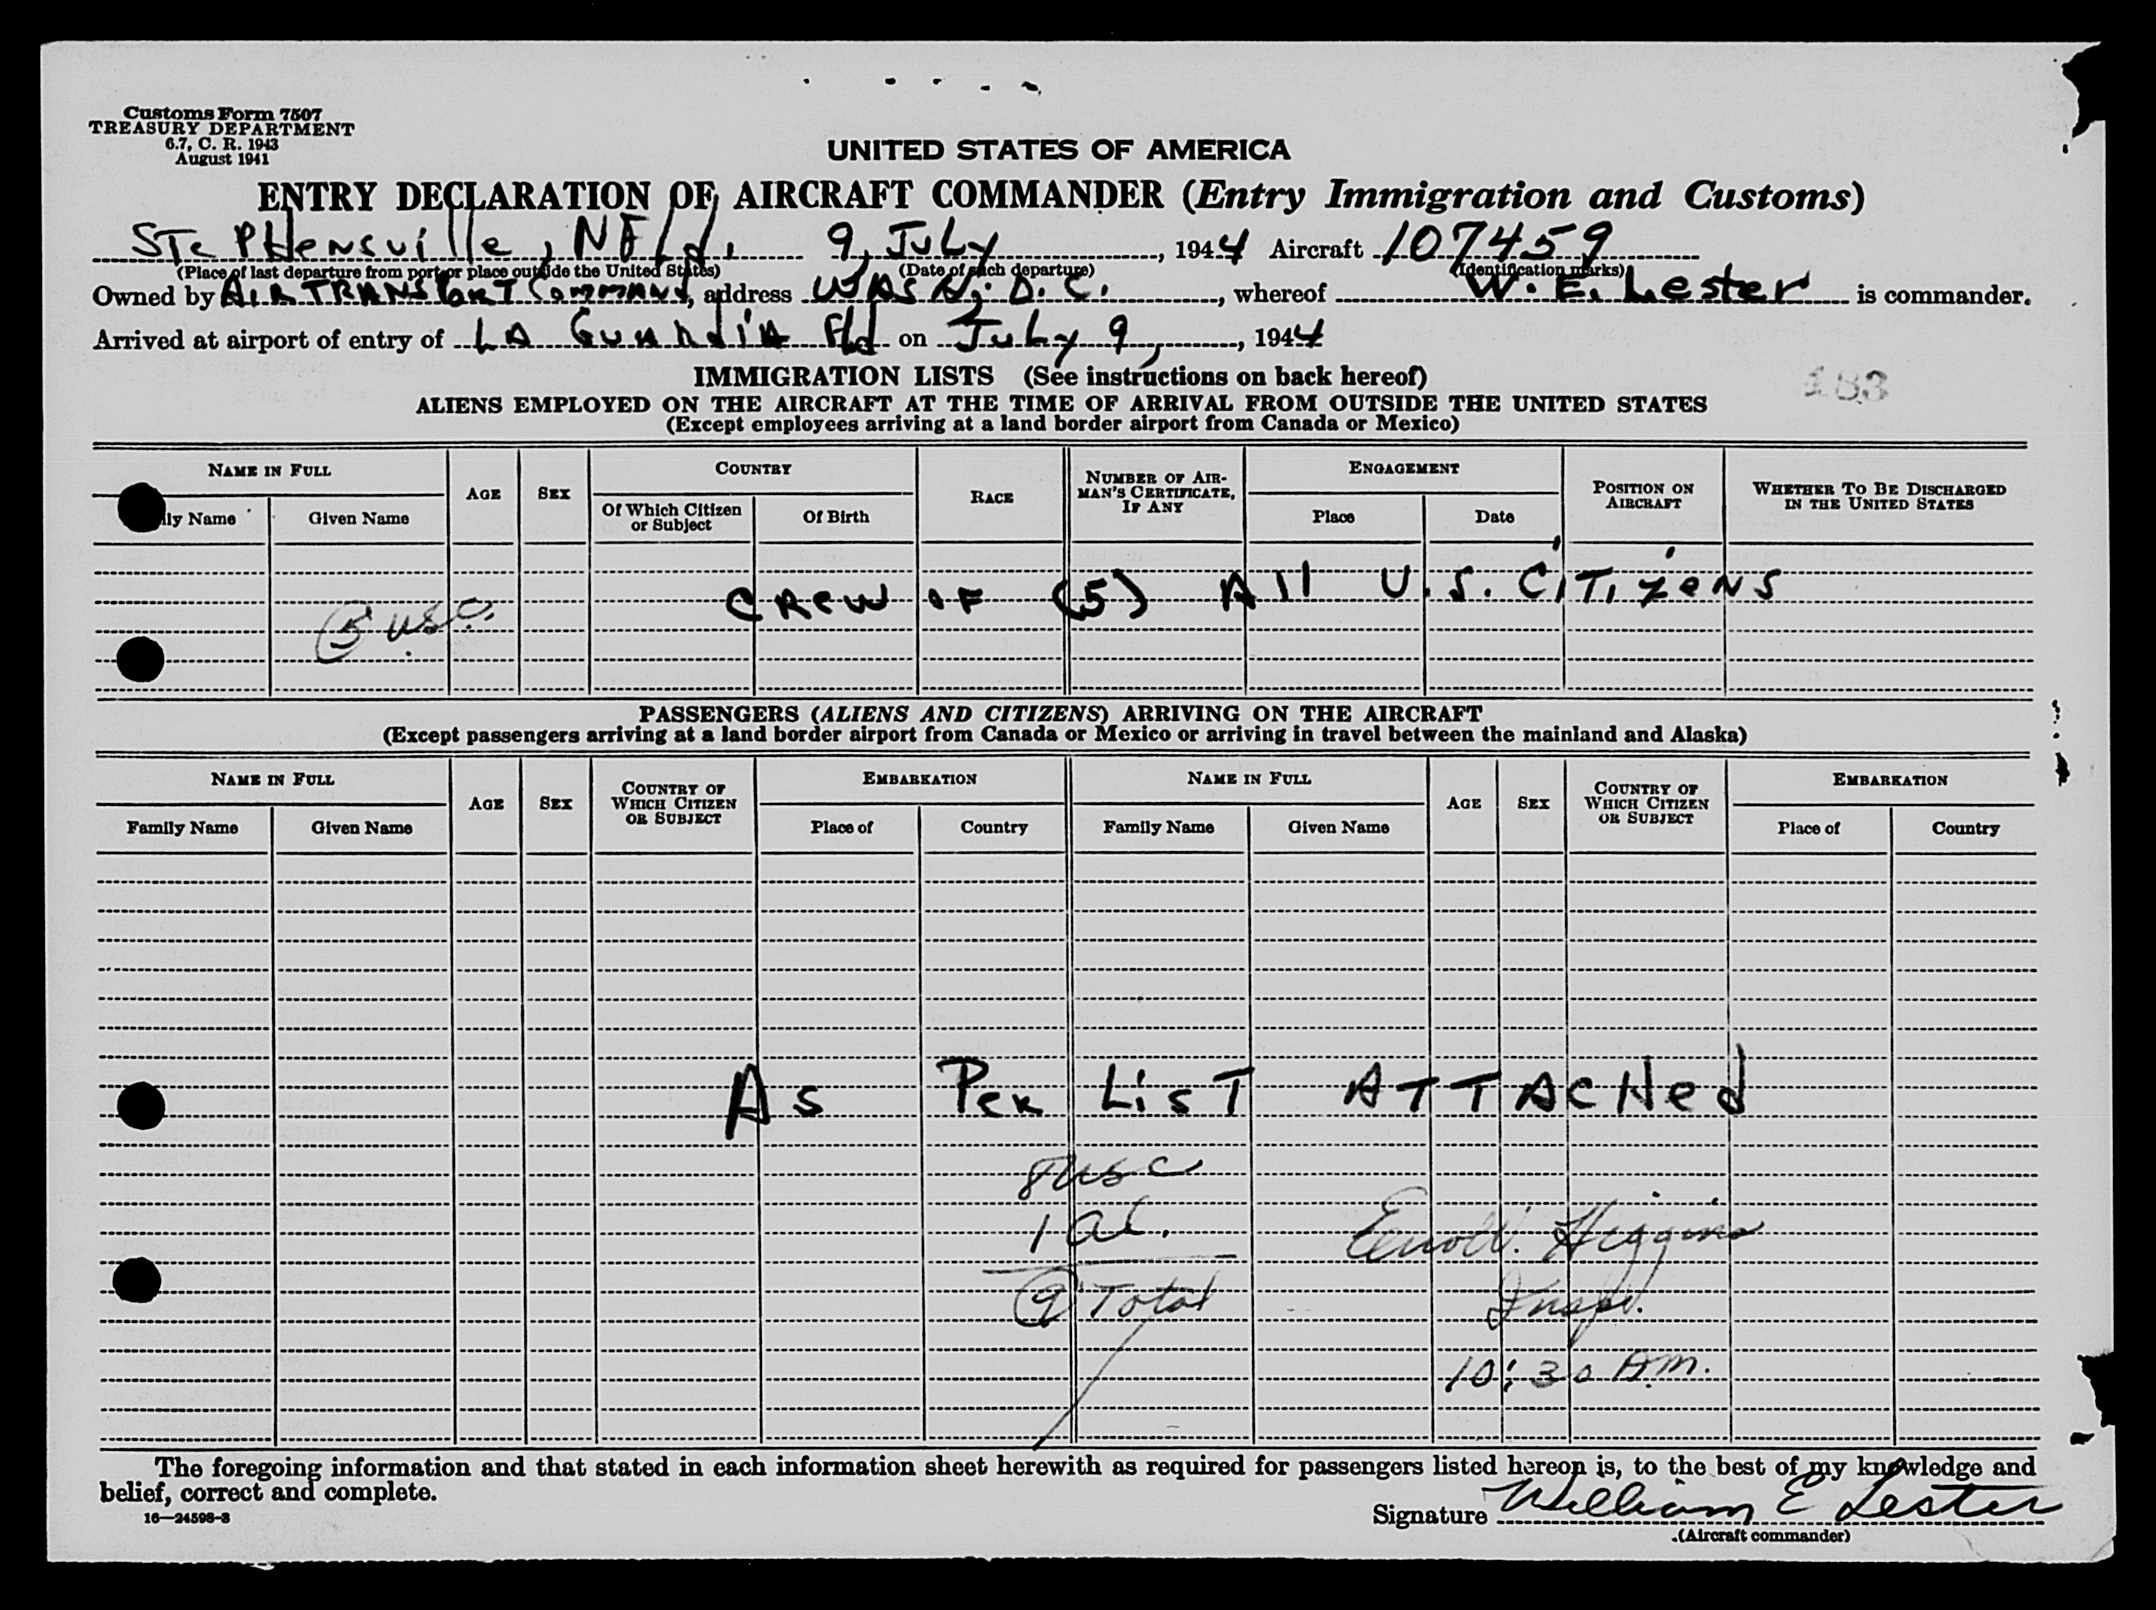 Customs Form 7507
TREASURY DEPARTMENT
6.7, C. R. 1943
August 1941
UNITED STATES OF AMERICA
ENTRY DECLARATION OF AIRCRAFT COMMANDER (Entry Immigration and Customs)
STePHensville, NFld. 9, July, 1944 Aircraft 107459
(Place of last departure from port or place outside the United States) (Date of such departure) (Identification marks)
Owned by AIR TRANSPORT COMMAND, address WASH. D.C., whereof W. E. Lester is commander.
Arrived at airport of entry of LA GUARDIA Fld on July 9, , 1944
IMMIGRATION LISTS (See instructions on back hereof)
183
ALIENS EMPLOYED ON THE AIRCRAFT AT THE TIME OF ARRIVAL FROM OUTSIDE THE UNITED STATES
(Except employees arriving at a land border airport from Canada or Mexico)
NAME IN FULL AGE SEX COUNTRY RACE NUMBER OF AIRMAN'S CERTIFICATE, IF ANY ENGAGEMENT POSITION ON AIRCRAFT WHETHER TO BE DISCHARGED IN THE UNITED STATES
ly Name Given Name Of Which Citizen or Subject Of Birth Place Date
CREW OF (5) All U.S. CITIZENS
5 USC.
PASSENGERS (ALIENS AND CITIZENS) ARRIVING ON THE AIRCRAFT
(Except passengers arriving at a land border airport from Canada or Mexico or arriving in travel between the mainland and Alaska)
NAME IN FULL AGE SEX COUNTRY OF WHICH CITIZEN OR SUBJECT EMBARKATION NAME IN FULL AGE SEX COUNTRY OF WHICH CITIZEN OR SUBJECT EMBARKATION
Family Name Given Name Place of Country Family Name Given Name Place of Country
As Per List ATTACHed
8 USC
1 al. Higgins
9 Total Inspr.
10:30 AM.
The foregoing information and that stated in each information sheet herewith as required for passengers listed hereon is, to the best of my knowledge and
belief, correct and complete.
16—24598-3
Signature William E Lester
(Aircraft commander)